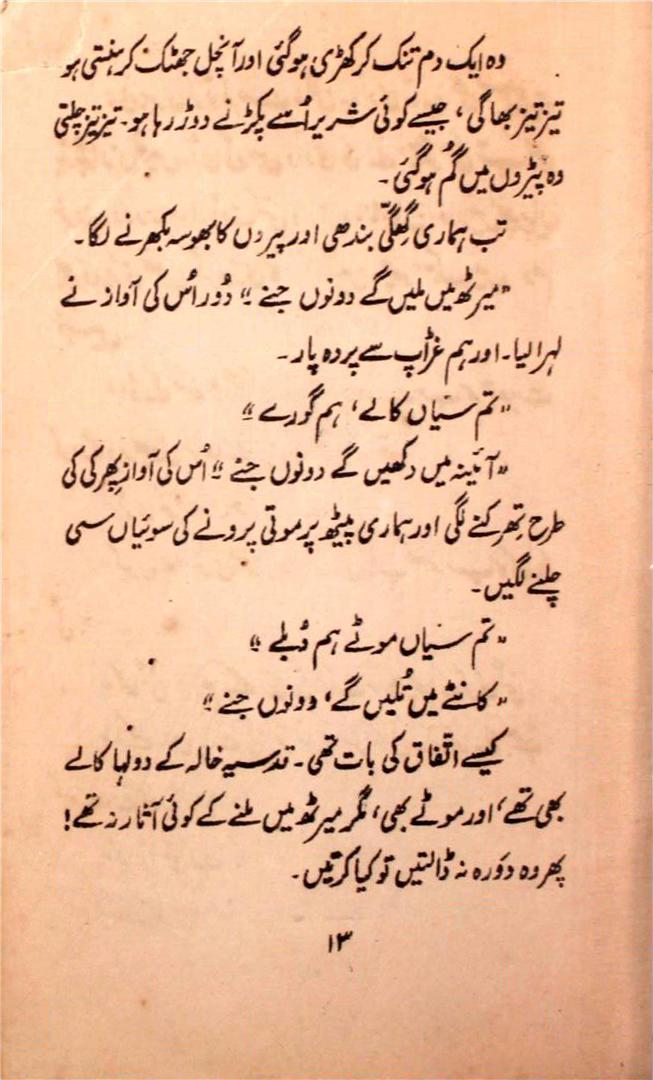 وہ ایک دم تنک کر کھڑی ہوگئی اور آنچل جھٹک کر ہنستی ہو
تیز تیز بھاگی، جیسے کوئی شریر اُسے پکڑنے دوڑ رہا ہو۔ تیز تیز چلتی
وہ پیڑوں میں گُم ہوگئی۔
تب ہماری گِھگّی بندھی اور پیروں کا بھوسہ بکھرنے لگا۔
"میرٹھ میں ملیں گے دونوں جنے" دُور اُس کی آواز نے
لہرا لیا۔ اور ہم غڑاپ سے پردہ پار۔
"تم سیّاں کالے، ہم گورے"
"آئینہ میں دکھیں گے دونوں جنے" اُس کی آواز پھرکی کی
طرح تھرکنے لگی اور ہماری پیٹھ پر موتی پرونے کی سوئیاں سی
چلنے لگیں۔
"تم سیّاں موٹے ہم دُبلے"
"کانٹے میں تُلیں گے، دونوں جنے"
کیسے اتّفاق کی بات تھی۔ قدسیہ خالہ کے دولہا کالے
بھی تھے، اور موٹے بھی، مگر میرٹھ میں ملنے کے کوئی آثار نہ تھے!
پھر وہ دَورہ نہ ڈالتیں تو کیا کرتیں۔
۱۳